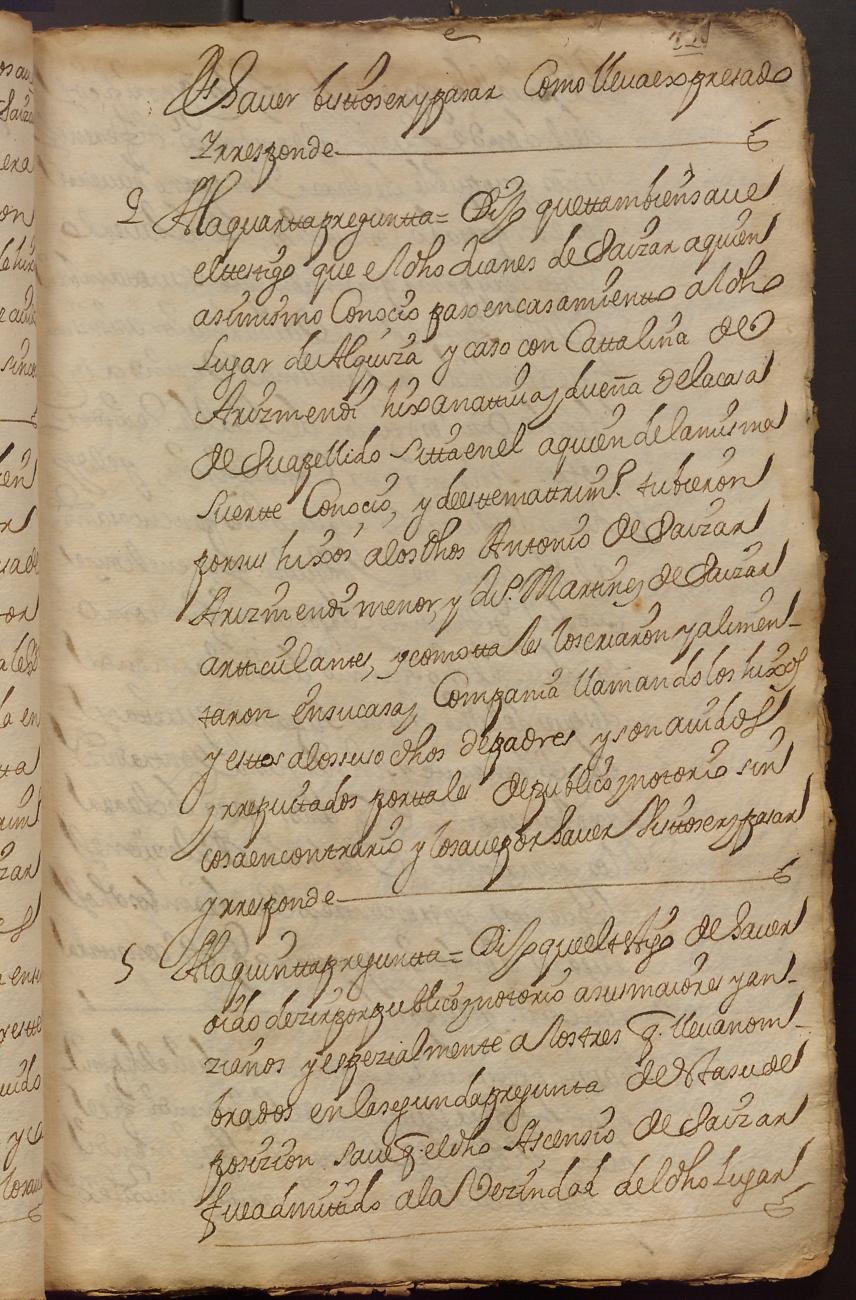 221
De haver bisttoseryparar Como lleva expresado
Yrresponde
4 Alaquarttapregunttta= Dijo quettambiensave
elttesttigo que eldho Juanes de Saizar aquien
asimismo Conocio paso encasamientto aldho
Lugar de Alquiza y caso con Cattalina de
Arizmendi hixanattivay dueña delacasa
de Suapellido sittaenel aquien delamisma
suertte Conocio, y deesttemattrimº. tubieron
porsus hixos alosdhos Antonio de Saizar
Arizmendi menor, y Dº. Martinez de Saizar
artticulantes, ycomottales loscriaron yalimen-
taron ensucasay Compania llamandolos hixos
yesttos alossusodhos depadres y son avidos
yrreputtados porttales depublicoynotorio sin
cosaencontrario y losaveporhaver visttoserypasar
yrresponde
5 Alaquinttapregunttta= Dijo queeltestigo de haver
oido dezirporpublicoynotorio asusmaiores yan-
zianos yespezialmentte alostres q. llevanom-
brados enlasegundapregunta de estasude
posizion save q. eldho Ascensio de Saizar
fueadmittido ala Vezindad deldho Lugar